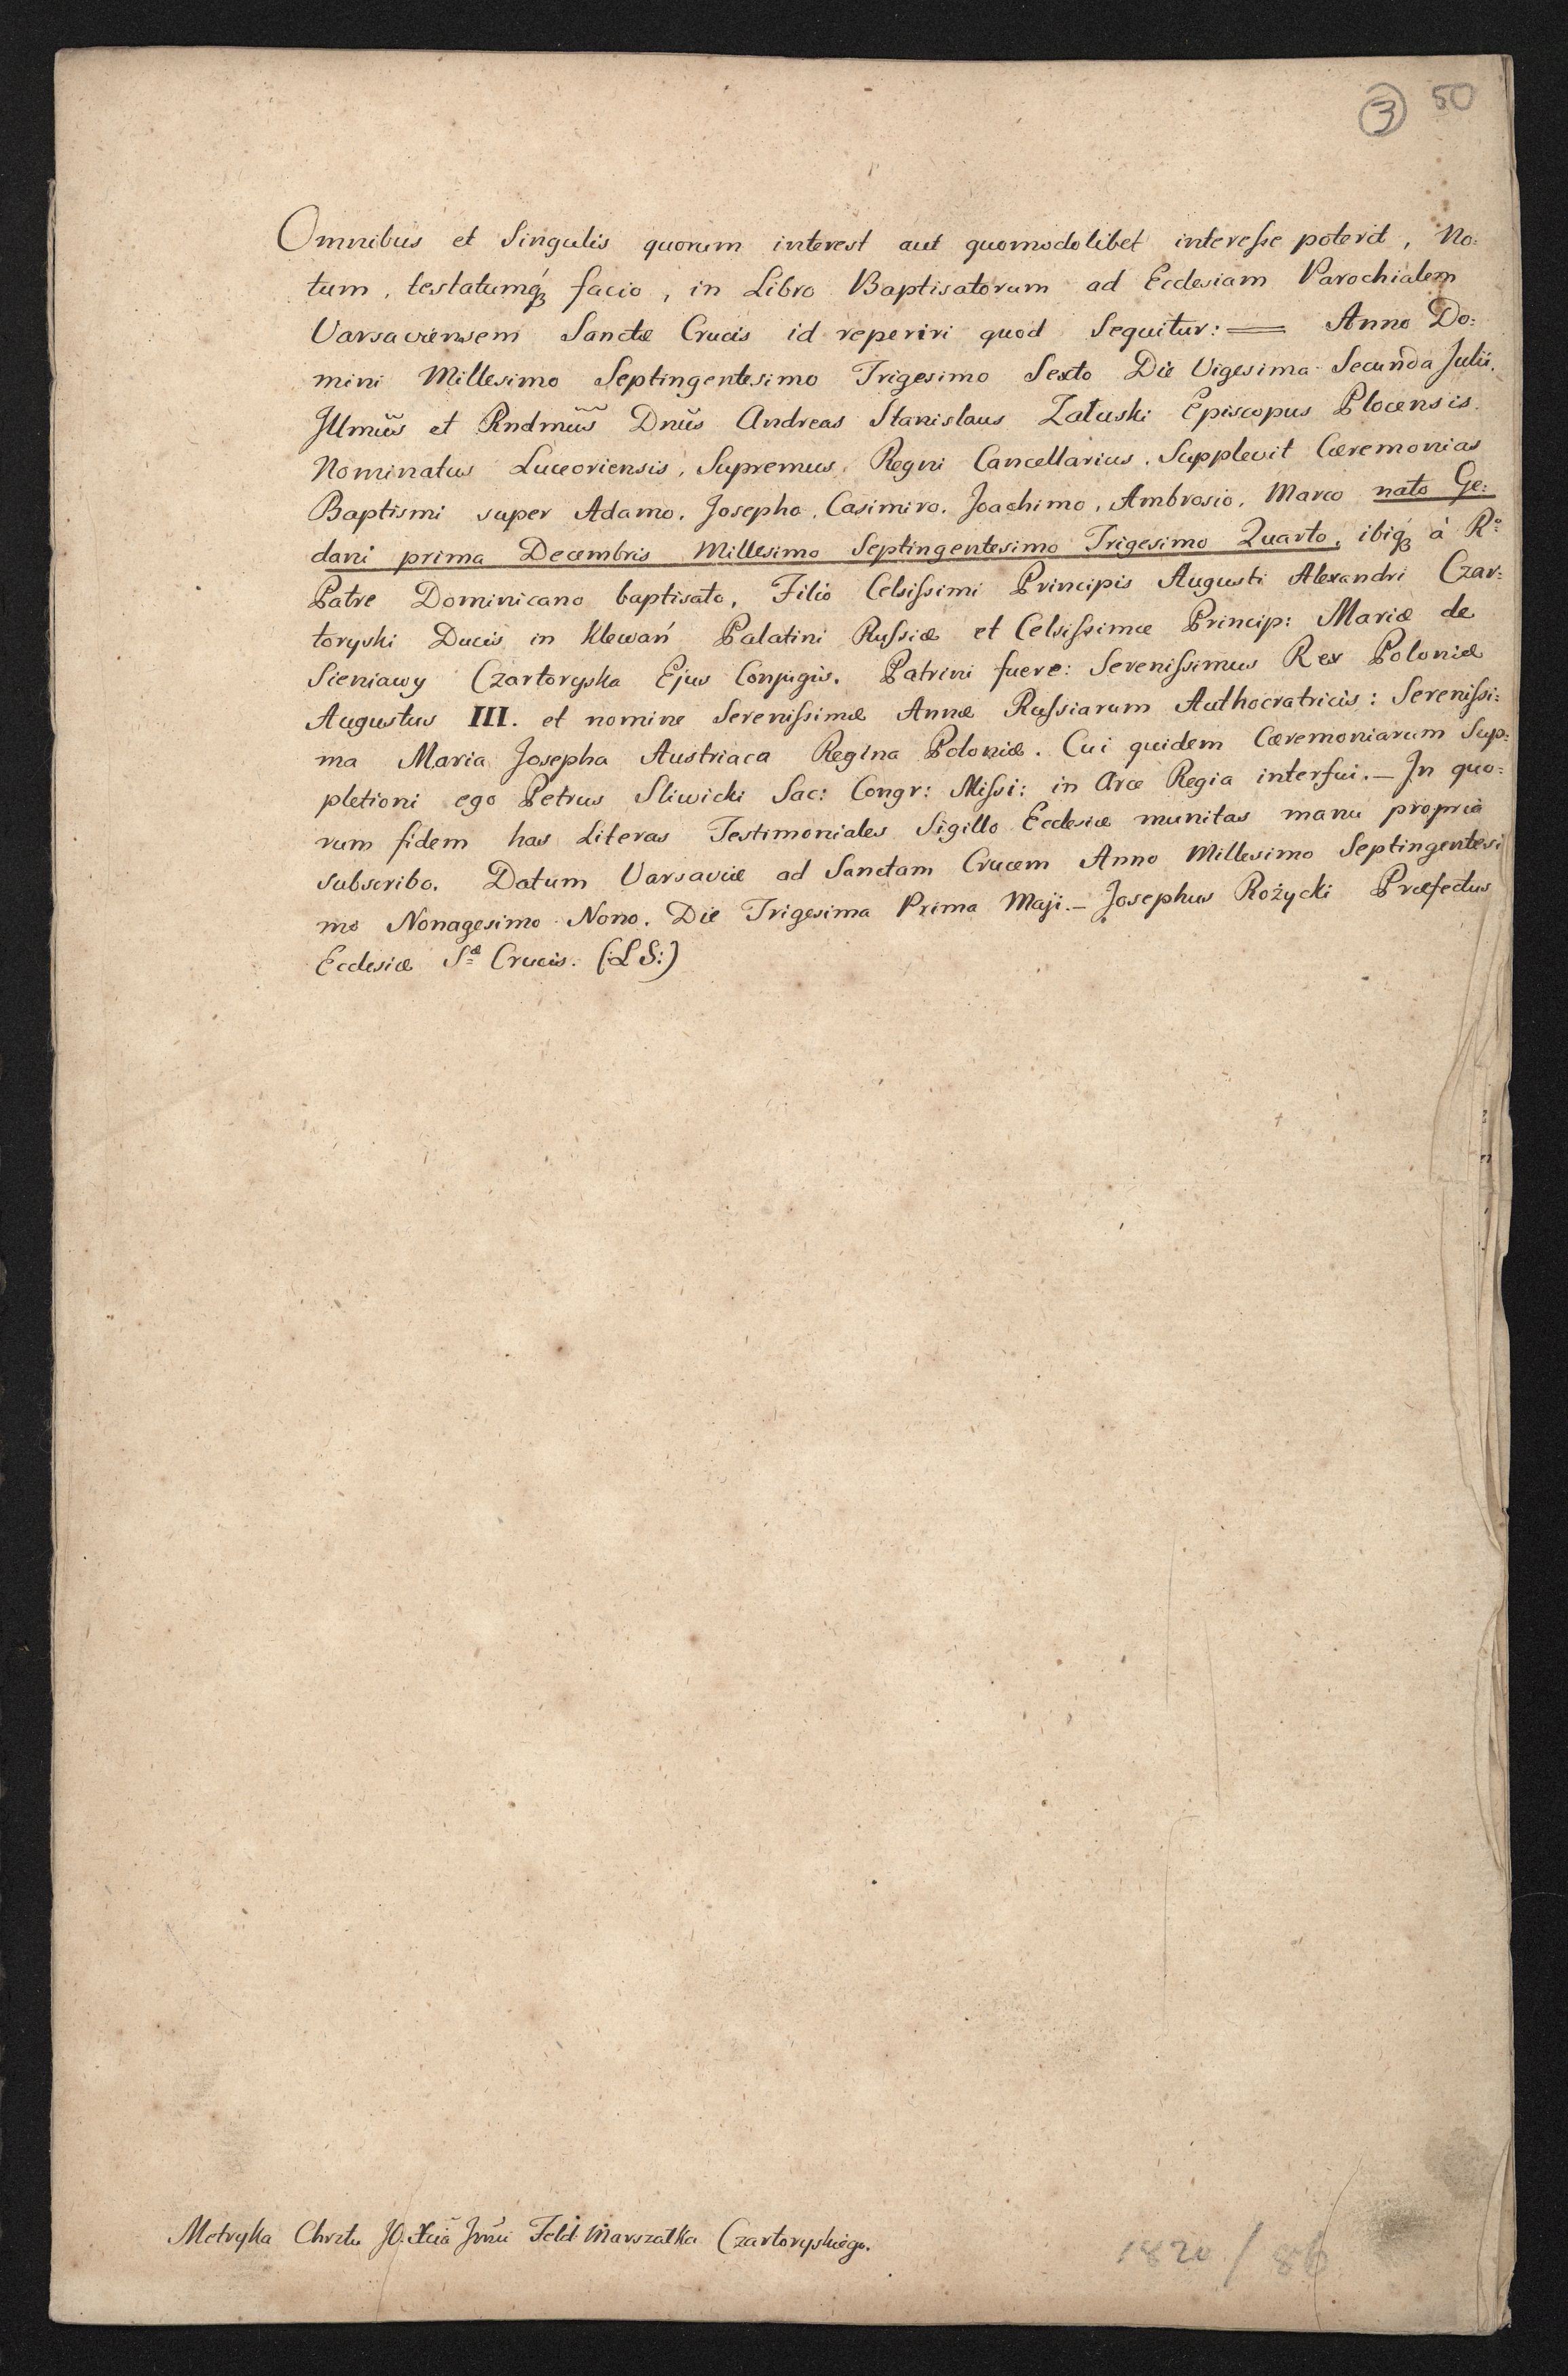 3 50
Omnibus et Singulis quorum interest aut quomodolibet interesse poterit, No:
tum, testatumq́ꝫ facio, in Libro Baptisatorum ad Ecclesiam Parochialem
Varsaviensem Sanctæ Crucis id reperiri quod Sequitur: = Anno Do:
mini Millesimo Septingentesimo Trigesimo Sexto Die Vigesima Secunda Julii.
Jllmũs et Rndmũs Dnũs Andreas Stanislaus Załuski Episcopus Plocensis.
Nominatus Luceoriensis, Supremus Regni Cancellarius. Supplevit Cæremonias
Baptismi super Adamo. Josepho. Casimiro. Joachimo, Ambrosio, Marco nato Ge:
dani prima Decembris Millesimo Septingentesimo Trigesimo Quarto, ibiqꝫ à Rº
Patre Dominicano baptisato, Filio Celsissimi Principis Augusti Alexandri Czar:
toryski Ducis in Klewań Palatini Russiæ et Celsissimæ Princip: Mariæ de
Sieniawy Czartoryska Ejus Conjugis. Patrini fuere: Serenissimus Rex Poloniæ
Augustus III. et nomine Serenissimæ Annæ Russiarum Authocratricis: Serenissi:
ma Maria Josepha Austriaca Regina Poloniæ. Cui quidem Cæremoniarum Sup:
pletioni ego Petrus Sliwicki Sac: Congr: Missi: in Arce Regia interfui.— Jn quo:
rum fidem has Literas Testimoniales Sigillo Ecclesiæ munitas manu propria
subscribo. Datum Varsaviæ ad Sanctam Crucem Anno Millesimo Septingentesi
mo Nonagesimo Nono. Die Trigesima Prima Maji.— Josephus Rożycki Præfectus
Ecclesiæ Sæ Crucis. (:L S:)
Metryka Chrztu JO. Xcia Jmći Feld Marszałka Czartoryskiego.
1820 / 86